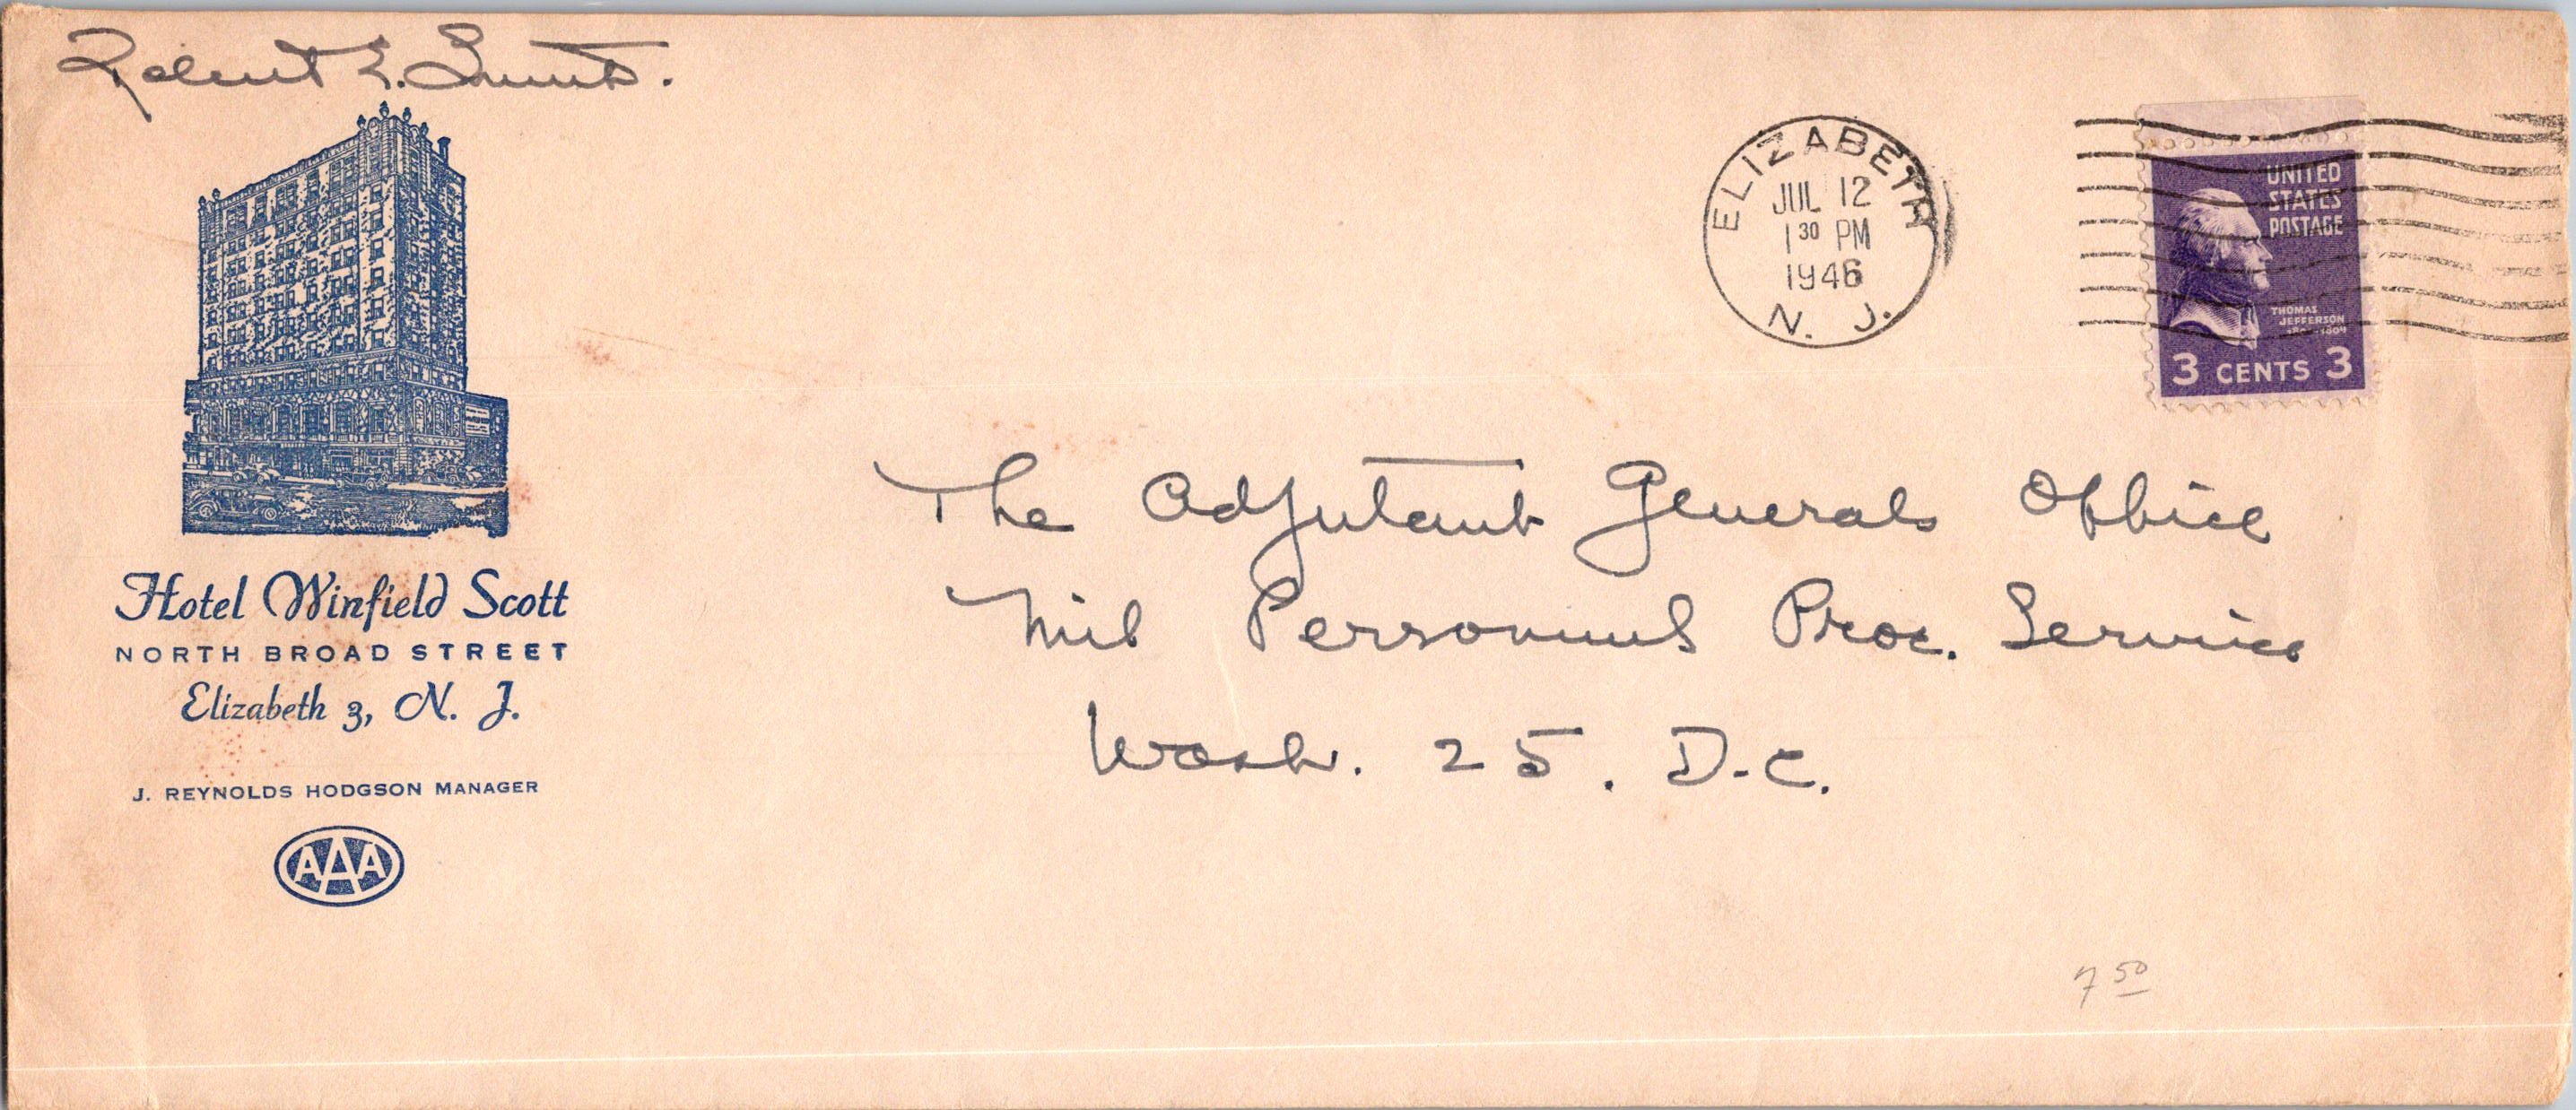 Robert E.
ELIZABETH
JUL 12
1 30 PM
1946
N. J.
UNITED
STATES
POSTAGE
THOMAS
JEFFERSON
3 CENTS 3
The Adjutant Generals Office
Mil Personnel Proc. Service
Wash. 25. D.C.
Hotel Winfield Scott
NORTH BROAD STREET
Elizabeth 3, N. J.
J. REYNOLDS HODGSON MANAGER
AAA
7 50